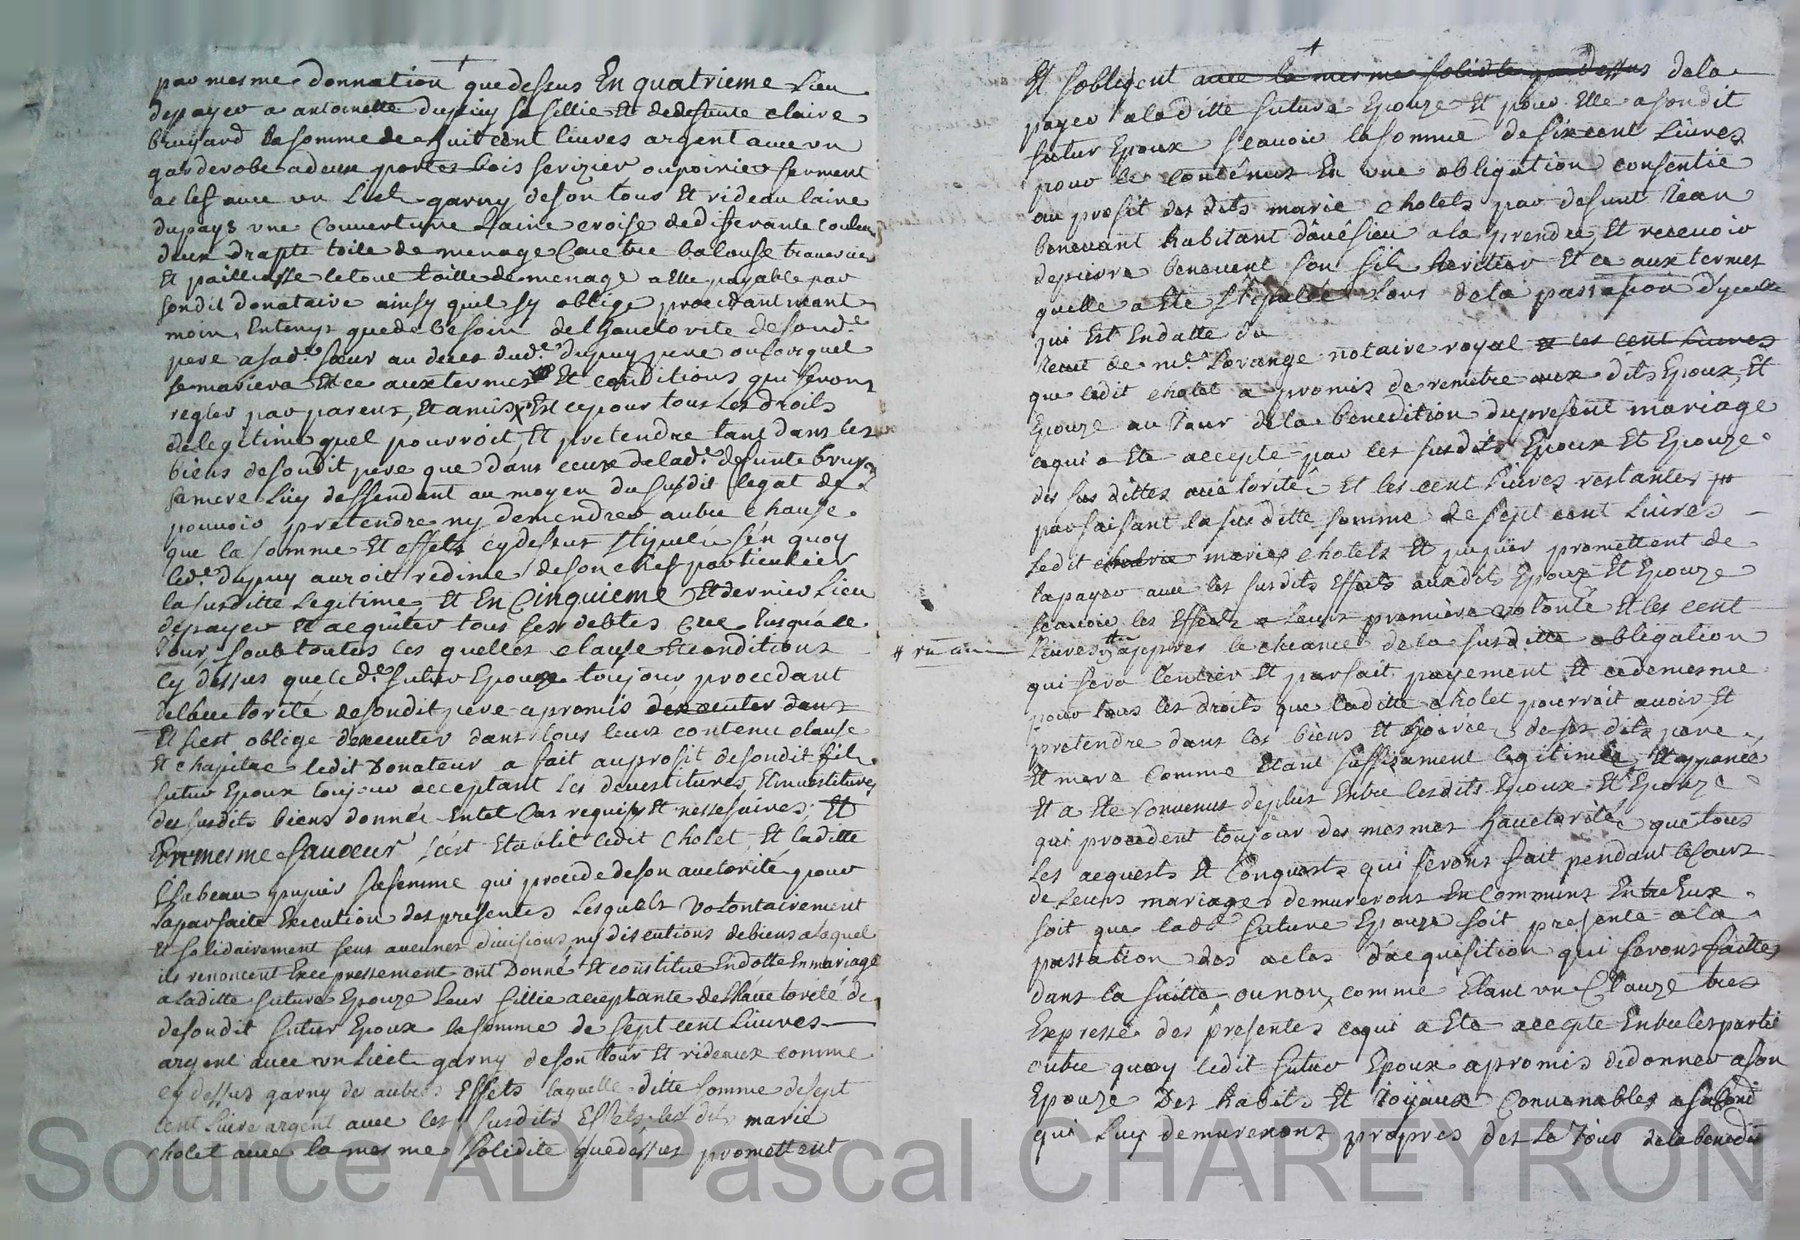 par mesme donnation que dessus En quatrieme Lieu
de payer a antoinette dupuy sa fillie Et de defunte claire
bruyard la somme de huit cent livres argent avec un
garderobe a deux portes bois serizier ou poirier ferment
a clef avec un Lict garny de son tour Et rideau laine
du pays une Couverture Laine croise de differante couleur
deux drapts toile de menage Couetre balouse traversier
Et pailliasse le tout toille de menage a Elle payable par
sondit donataire ainsy quel sy oblige procedant
moin, En temps que de besoin de Lhauctorite de sond.
pere a sad.e sœur au deces dud.t dupuy pere ou lorsquel
se mariera Et ce aux termes Et conditions qui seront
regler par parents, Et amis Est ce pour tous Les droits
de legitime quel pourroit, Et pretendre tant dans les
biens de sondit pere que dans ceux de lad.e defunte bruyard
sa mere Luy deffendant au moyen du susdit legat de
pouvoir pretendre ny demendrer autre chause
que la somme Et effets cy dessus stipulé, sen quoy
led.t dupuy auroit redime de son chef particulier
la susditte Legitime, Et En Cinquieme Et dernier Lieu
de payer Et acquiter tous ses debtes Cree Jusqua ce
Jour, soub toutes les quelles clause Et conditions
Cy dessus que led.t futur Epoux toujour procedant
de Lauctorité de sondit pere a promis dexecuter dans
Et s'est oblige dexecuter dans tous leurs contenu clause
Et chapitre ledit Donateur a fait au profit de sondit fils
futur Epoux toujour acceptant les devestitures, Et investitures
des susdits biens donné En tel Cas requis Et nessesaires, Et
En mesme faveur s'est Etablit ledit Cholet, Et laditte
Elisabeau pupier sa femme qui procede de son auctorité, pour
la parfaite Execution des présentes Lesquels Volontairement
Et solidairement sens aucunes divisions, ny discutions de biens a laquel
ils renoncent Exepressement ont Donné Et constitue En dotte En mariage
a Laditte future Epouze Leur fillie acceptante de Lhauctorité de
de sondit futur Epoux la somme de sept cent Livres
argent avec un Lict garny de son tour Et rideaux comme
cy dessus garny de autres Effets laquelle ditte somme de sept
cent Livre argent avec les susdits Effets, les dits marié
cholet avec la mesme solidite que dessus promettent
Et s'obligent avec la mesme solidite que dessus de la
payer a la ditte future Epouze Et pour Elle a sondit
futur Epoux scavoir la somme de six cent Livres
pour le contenus En une obligation consentie
au profit des dits marié cholets par defunt Jean
benevant habitant davésieu a la prendre Et recevoir
de pierre benevent son fils heritier Et ce aux termes
quelle a Ete stipulée Lors de la passation dycelle
qui Est En datte du
recut de m.e Lorange notaire royal et les cent Livres
que ledit cholet a promis de remettre aux dits Epoux, Et
Epouze au Jour de la benediction du present mariage
ce qui a Ete accepté par les susdits Epoux Et Epouze
des sus dittes auctorité Et les cent Livres restantes
parfaisant la sus ditte somme de sept cent Livres
Ledit mariés cholets Et pupier promettent de
la payer avec les susdits Effets auxdits Epoux Et Epouze
scavoir les Effets a Leurs première volonté Et les cent
# un an
Livres # appres le cheance de la susditte obligation
qui sera L'entier Et parfait payement Et ce de mesme
pour tous les droits que laditte cholet pourroit avoir Et
pretendre dans les biens Et hoirie de ses dits pere
Et mere Comme Etant suffisament legitimée Et appanée
Et a Ete Convenus de plus Entre lesdits Epoux Et Epouze
qui procedent toujour des mesmes hauctorité que tous
Les acquests Et Conquests qui seront fait pendant le Cours
de Leurs mariage demureront En Commins Entre Eux
soit que lad.e future Epouze soit presente a la
passation des actes d'acquisition qui seront faittes
dans la suitte ou non, comme Etant un Clauze tres
Expresse des présentes ce qui a Ete accepte Entre les partie
outre quoy ledit futur Epoux a promis de donner a son
Epouze Des habits Et Joyaux Convenables a sa Condi
qui Luy demureront propres des Le Jour de la benedi
Source AD Pascal CHAREYRON